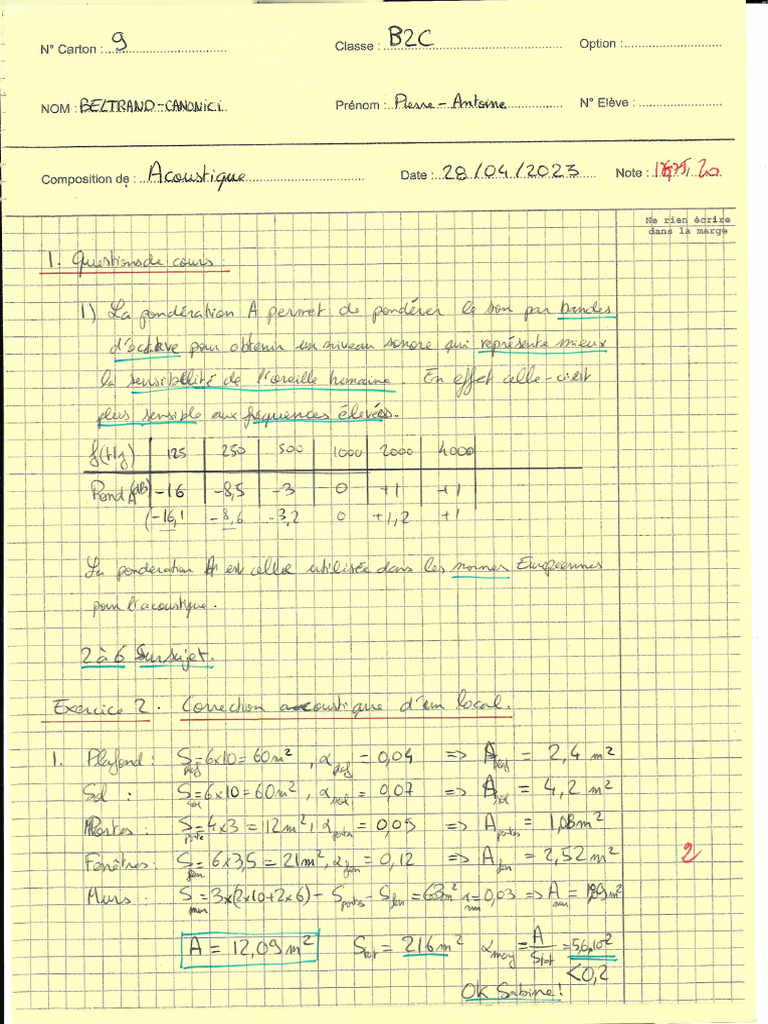 N° Carton : 9 Classe : B2C Option :
NOM : BELTRAND-CANONICI Prénom : Pierre-Antoine N° Elève :
Composition de : Acoustique Date : 28/04/2023 Note : 20
Ne rien écrire
dans la marge
1. Questions de cours :
1) La pondération A permet de pondérer le son par bandes
d'octave pour obtenir un niveau sonore qui représente mieux
la sensibilité de l'oreille humaine. En effet celle-ci est
plus sensible aux fréquences élevées.
f(Hz) 125 250 500 1000 2000 4000
Pond A (dB) -16 -8,5 -3 0 +1 +1
(-16,1 -8,6 -3,2 0 +1,2 +1
La pondération A est celle utilisée dans les normes Européennes
pour l'acoustique.
2 à 6 Sur sujet.
Exercice 2. Correction acoustique d'un local.
1. Plafond : S plaf = 6x10 = 60 m², α plaf = 0,04 => A plaf = 2,4 m²
Sol : S sol = 6x10 = 60 m², α sol = 0,07 => A sol = 4,2 m²
Portes : S porte = 4x3 = 12 m², α portes = 0,09 => A portes = 1,08 m²
Fenêtres : S fen = 6x3,5 = 21 m², α fen = 0,12 => A fen = 2,52 m²
2
Murs : S mur = 3x(2x10+2x6) - S portes - S fen = 63 m² α mur = 0,03 => A mur = 1,89 m²
A = 12,09 m² S tot = 216 m² α moy = A / S tot = 5,6.10⁻²
<0,2
OK Sabine !